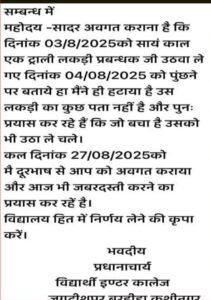 सम्बन्ध में
महोदय -सादर अवगत कराना है कि
दिनांक 03/8/2025को सायं काल
एक ट्राली लकड़ी प्रबन्धक जी उठवा ले
गए दिनांक 04/08/2025 को पुंछने
पर बताये हा मैंने ही हटाया है उस
लकड़ी का कुछ पता नहीं है और पुनः
प्रयास कर रहे हैं कि जो बचा है उसको
भी उठा ले चले।
कल दिनांक 27/08/2025को
मै दूरभाष से आप को अवगत कराया
और आज भी जबरदस्ती करने का
प्रयास कर रहें है।
विद्यालय हित में निर्णय लेने की कृपा
करें।
भवदीय
प्रधानाचार्य
विद्यार्थी इण्टर कालेज